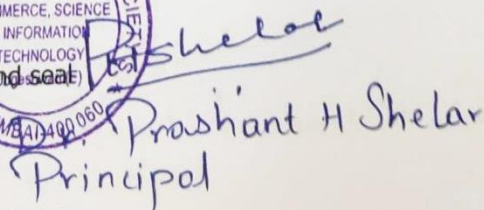 MMERCE, SCIENCE
INFORMATION
TECHNOLOGY
nd seal
400 060
Pshelar
Dr. Prashant H Shelar
Principal